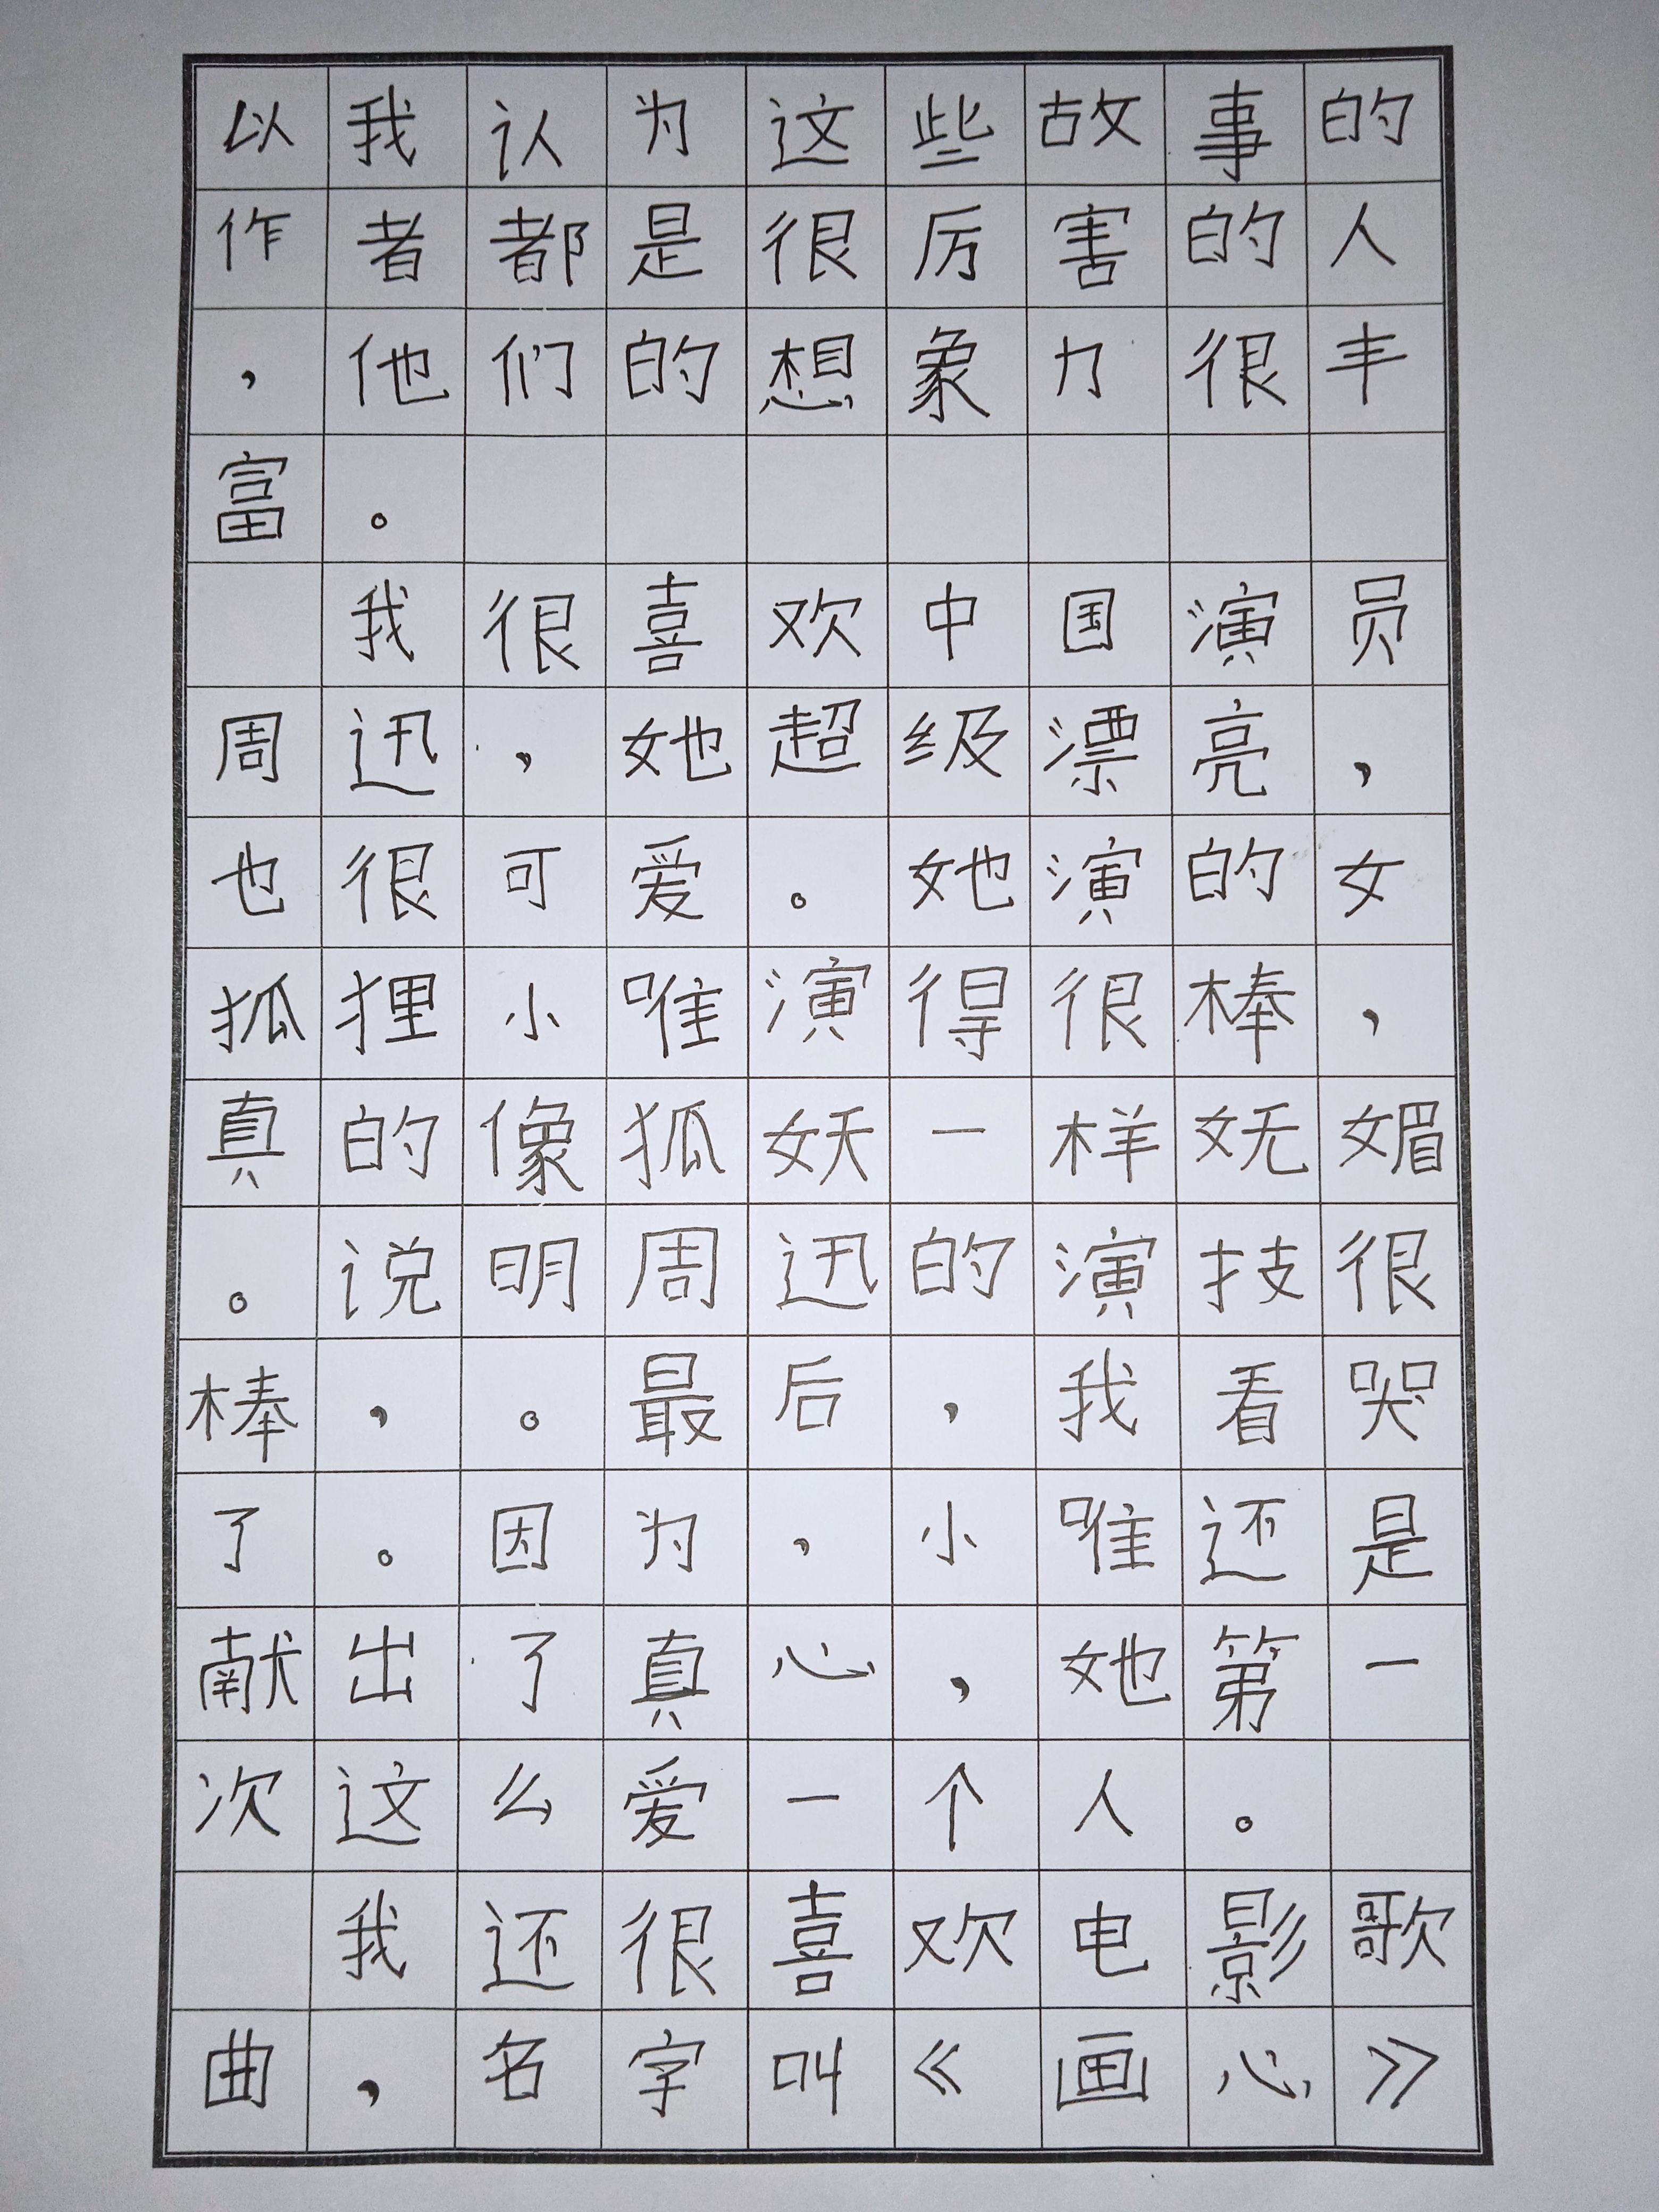 以我认为这些故事的
作者都是很厉害的人
，他们的想象力很丰
富。
我很喜欢中国演员
周迅，她超级漂亮，
也很可爱。她演的女
狐狸小唯演得很棒，
真的像狐妖一样妩媚
。说明周迅的演技很
棒，。最后，我看哭
了。因为，小唯还是
献出了真心，她第一
次这么爱一个人。
我还很喜欢电影歌
曲，名字叫《画心》